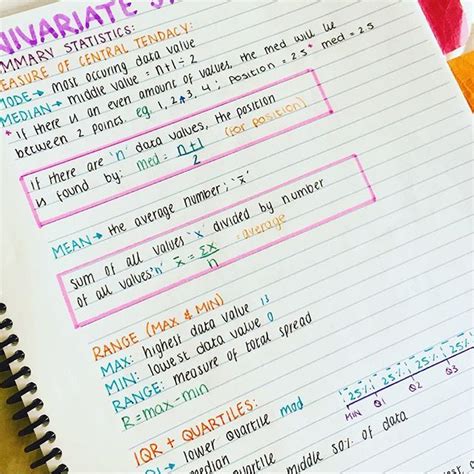 NIVARIATE
MMARY STATISTICS:
EASURE OF CENTRAL TENDACY:
MODE→ most occuring data value
MEDIAN→ middle value = n+1 ÷ 2
* If there is an even amount of values, the med will lie
between 2 points. eg. 1, 2, 3, 4; position = 2.5 * med = 2.5
If there are 'n' data values, the position
is found by: med = n+1/2 (for position)
MEAN→ the average number; 'x̄'
sum of all values 'x' divided by number
of all values 'n' x̄ = Σx/n = average
RANGE (MAX & MIN)
MAX: highest data value 13
MIN: lowest data value 0
RANGE: measure of total spread
R = max - min
25% 25% 25% 25%
MIN Q1 Q2 Q3
IQR + QUARTILES:
Q1→ lower quartile med
median
quartile middle 50% of data